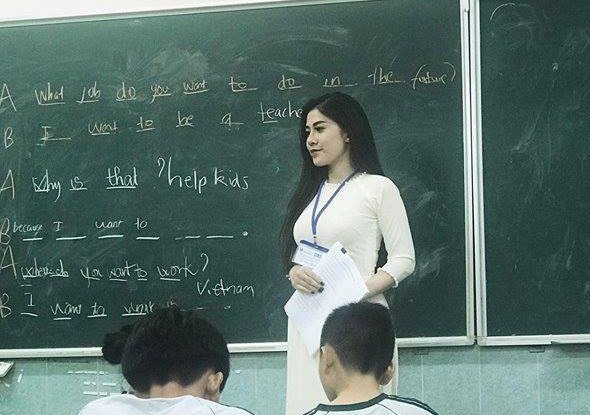 A What job do you want to do in the future?
B I want to be a teache
A Why is that? help kids
B because I want to
A where do you want to work?
Vietnam
B I want to work